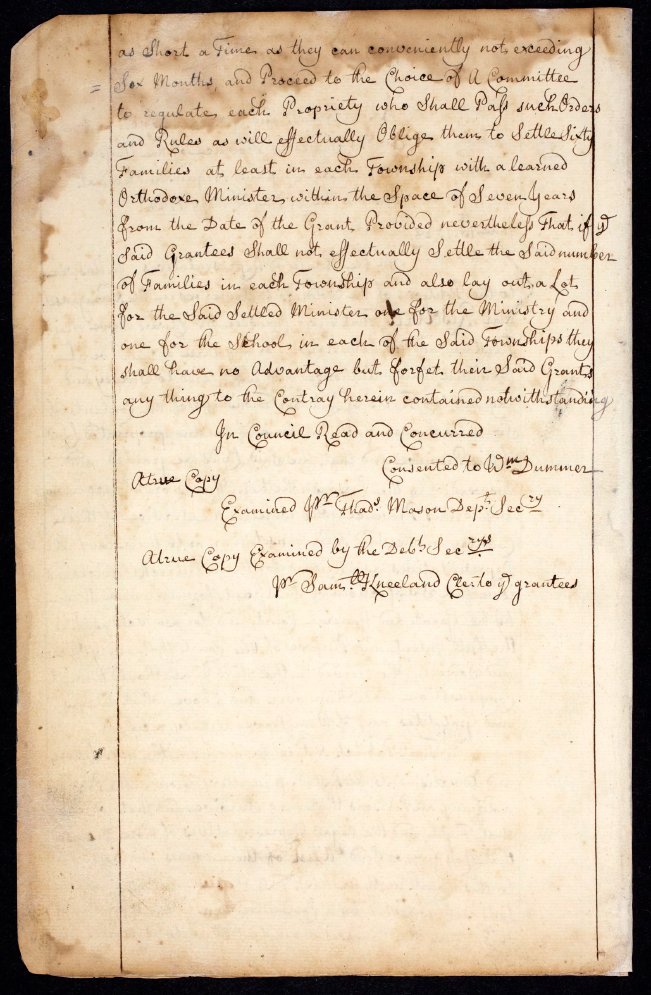 as Short a Time as they can conveniently not exceeding
= Six Months, and Proceed to the Choice of A Committee
to regulate each Propriety who Shall Pass such Orders
and Rules as will effectually Oblige them to Settle Sixty
Families at least in each Township with a learned
Orthodoxe Minister within the Space of Seven Years
from the Date of the Grant Provided nevertheless That if ye
Said Grantees Shall not effectually Settle the Said number
of Families in each Township and also lay out a Lot
for the Said Settled Minister one for the Ministry and
one for the School in each of the Said Townships they
shall have no Advantage but forfet their Said Grants
any thing to the Contray herein contained notwithstanding
In Council Read and Concurred
Consented to Wm Dummer
A true Copy
Examined pr Thads. Mason Dept. Secry
A true Copy Examined by the Debt. Secrys
pr Samll. Kneeland Cler to ye grantees